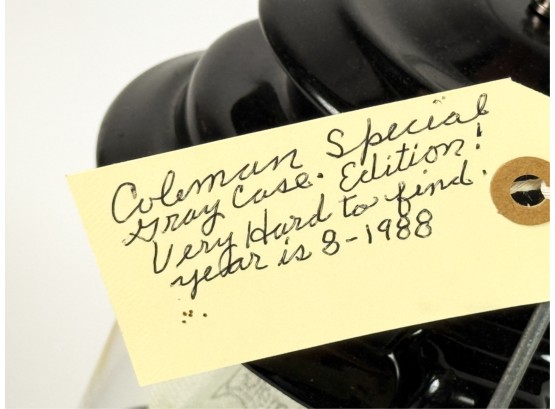 Coleman Special
Gray Case. Edition!
Very Hard to find.
year is 8-1988